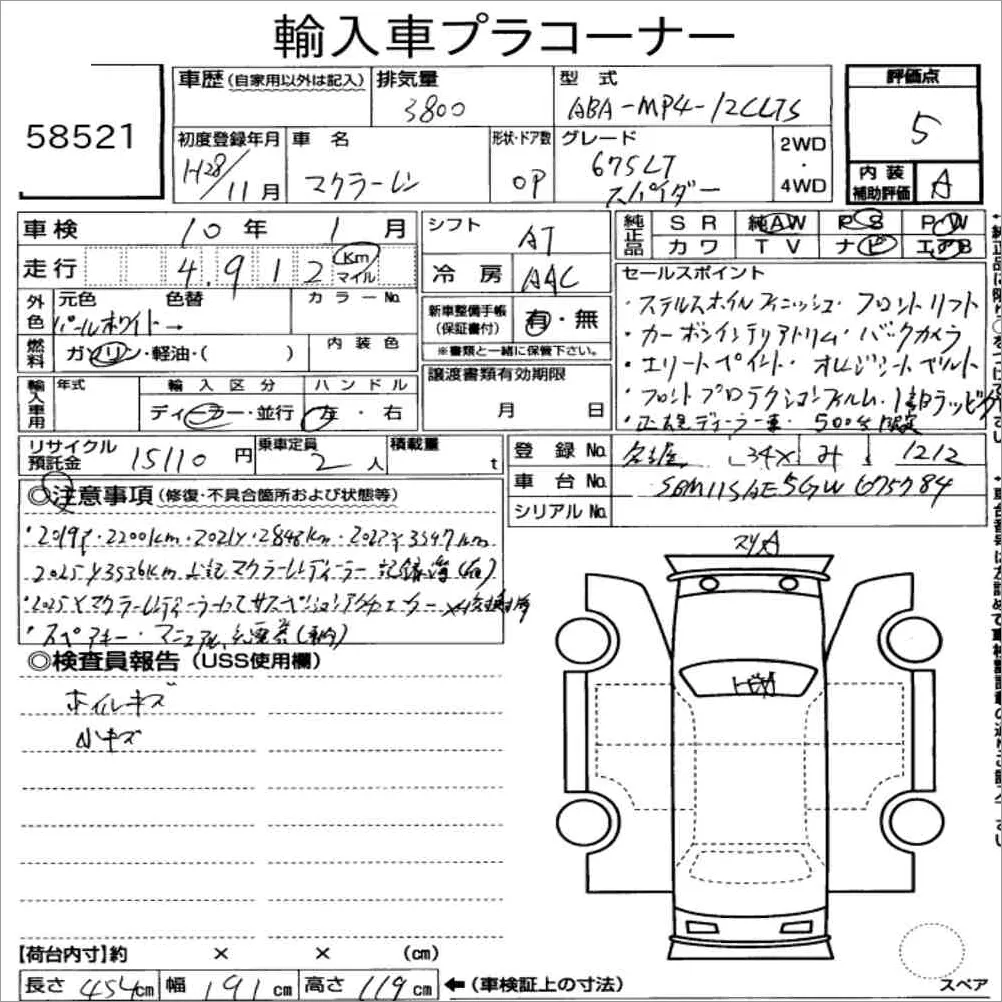 輸入車プラコーナー
58521
車歴 (自家用以外は記入)
排気量 3800
型式 ABA-MP4-12CLTS
評価点 5
初度登録年月 H28/11月
車名 マクラーレン
形状・ドア数 OP
グレード 675LT スパイダー
2WD・4WD
内装補助評価 A
車検 10年 1月
シフト AT
純正品 SR 純AW PS PW
カワ TV ナビ エアB
走行 4,912 Km マイル
冷房 AAC
セールスポイント
外色 元色 色替 カラーNo.
パールホワイト→
新車整備手帳(保証書付) 有・無
※書類と一緒に保管下さい。
燃料 ガソリン・軽油・( ) 内装色
・ステルスホイルフィニッシュ・フロントリフト
・カーボンインテリアトリム・バックカメラ
・エリートペイント・オレンジシートベルト
・フロントプロテクションフィルム・
・正規ディーラー車・500台限定
輸入車用 年式 輸入区分 ハンドル
ディーラー・並行 左・右
譲渡書類有効期限
月 日
リサイクル預託金 15110円 乗車定員 2人 積載量 t
登録No. 名古屋 34X み 1212
車台No. SBM11SAE5GW675784
シリアルNo.
◎注意事項(修復・不具合箇所および状態等)
・2019y・2200km・2021y・2848km・2022y 3547km
2025y 3536km 上記マクラーレンディーラー記録簿(有)
・2025yマクラーレンディーラーにてサスペンションアクチュエーター×4交換済
・スペアキー・マニュアル
◎検査員報告(USS使用欄)
ホイルキズ
小キズ
スリA
トビA
【荷台内寸】約 × × (cm)
長さ 454cm 幅 191cm 高さ 119cm ←(車検証上の寸法)
スペア